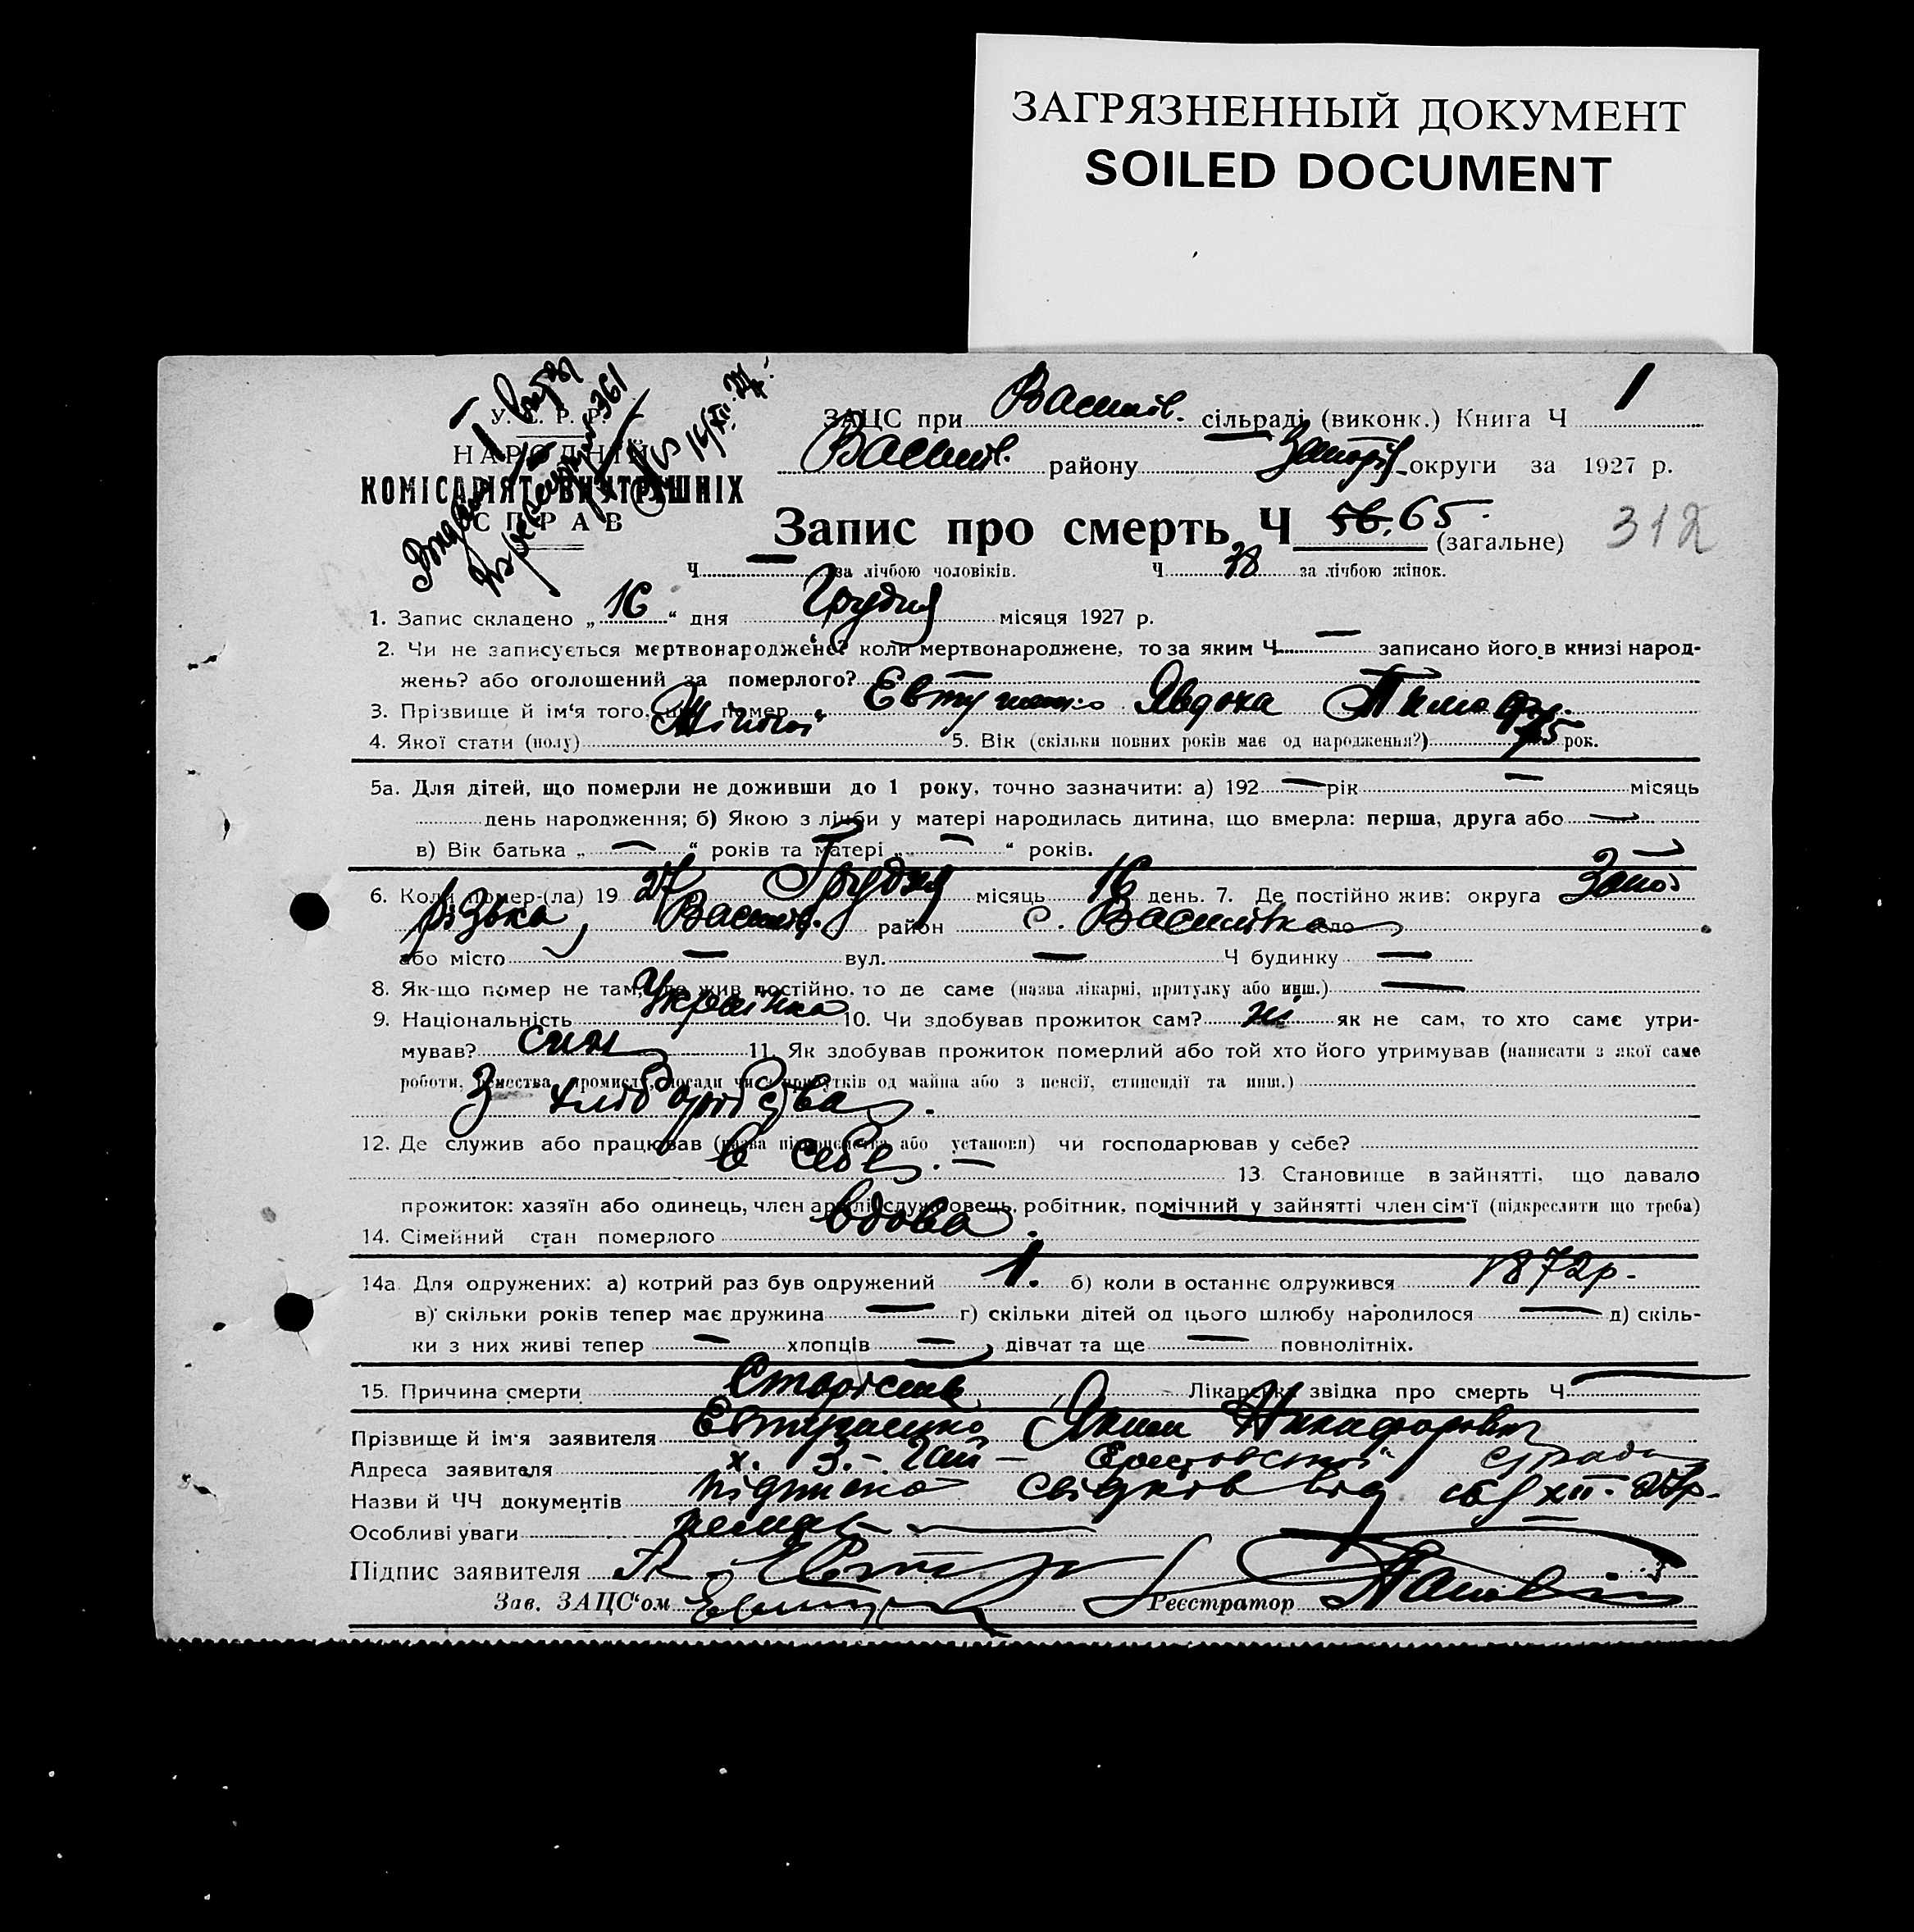 ЗАГРЯЗНЕННЫЙ ДОКУМЕНТ
SOILED DOCUMENT
У. С. Р. Р.
НАРОДНІЙ
КОМІСАРІЯТ ВНУТРІШНІХ
СПРАВ
ЗАЦС при Василів. сільраді (виконк.) Книга Ч 1
Василів. району округи за 1927 р.
Запис про смерть Ч 56, 65. (загальне) 312
Ч — за лічбою чоловіків. Ч 38 за лічбою жінок.
1. Запис складено „16“ дня Грудня місяця 1927 р.
2. Чи не записується мертвонароджене? коли мертвонароджене, то за яким Ч — записано його в книзі народ-
жень? або оголошений за померлого? —
3. Прізвище й ім'я того, що помер Євтушенко Явдоха
4. Якої стати (полу) Жіночої 5. Вік (скільки повних років має од народження?) 75 рок.
5а. Для дітей, що померли не доживши до 1 року, точно зазначити: а) 192 — рік — місяць
день народження; б) Якою з лічби у матері народилась дитина, що вмерла: перша, друга або —
в) Вік батька „ — “ років та матері „ — “ років.
6. Коли помер-(ла) 19 27 Грудня місяць 16 день. 7. Де постійно жив: округа Запо-
різька, Василів. район с. Василівка село
або місто — вул. — Ч будинку —
8. Як-що помер не там, де жив постійно, то де саме (назва лікарні, притулку або инш.) —
9. Національність Українка 10. Чи здобував прожиток сам? ні як не сам, то хто саме утри-
мував? син 11. Як здобував прожиток померлий або той хто його утримував (написати з якої саме
роботи, ремества, промислу, посади чи з прибутків од майна або з пенсії, стипендії та инш.)
З хліборобства.
12. Де служив або працював (назва підприємства або установи) чи господарював у себе?
в себе. — 13. Становище в зайнятті, що давало
прожиток: хазяїн або одинець, член артілі, службовець, робітник, помічний у зайнятті член сім'ї (підкреслити що треба)
14. Сімейний стан померлого вдова.
14а. Для одружених: а) котрий раз був одружений 1. б) коли в останнє одружився 1872р.
в) скільки років тепер має дружина — г) скільки дітей од цього шлюбу народилося — д) скіль-
ки з них живі тепер — хлопців —, дівчат та ще — повнолітніх.
15. Причина смерти Старість Лікарська звідка про смерть Ч —
Прізвище й ім'я заявителя Євтушенко Яким Никифорович
Адреса заявителя х. З.-Гай —
Назви й ЧЧ документів підписка свідків від 16/XII-27р.
Особливі уваги немає —
Підпис заявителя
Зав. ЗАЦС'ом Реєстратор